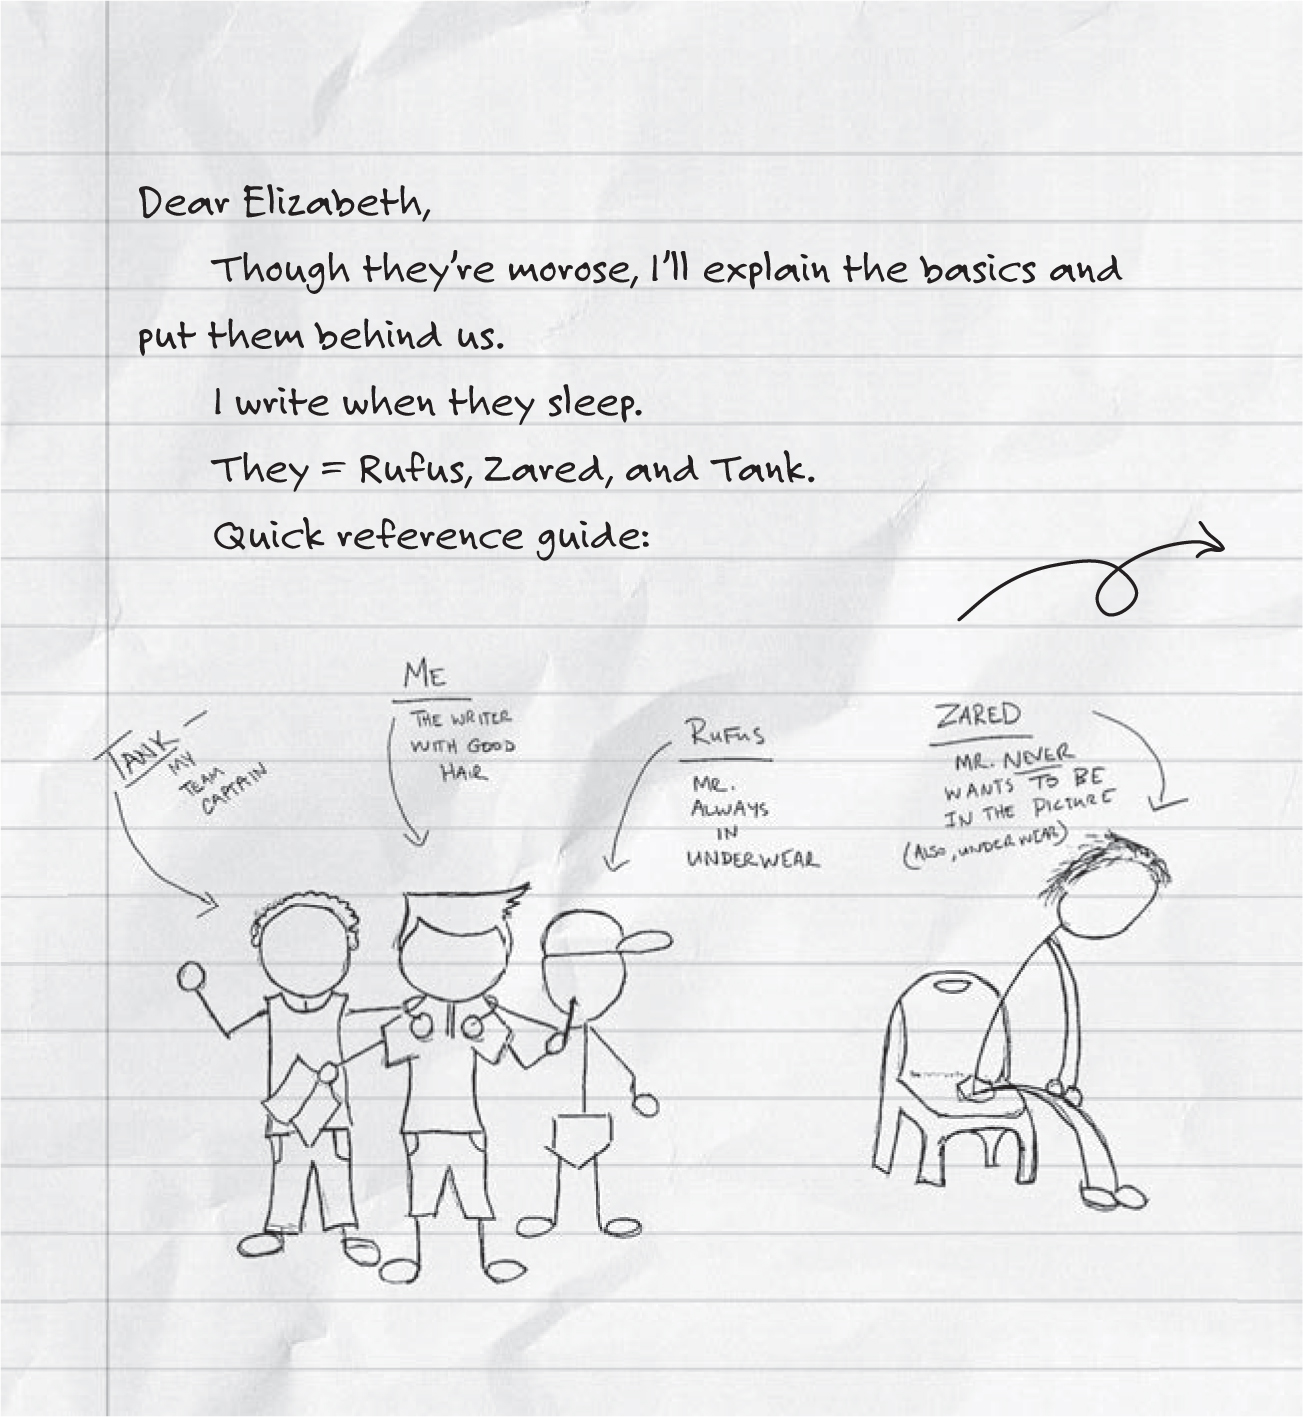 Dear Elizabeth,
Though they're morose, I'll explain the basics and
put them behind us.
I write when they sleep.
They = Rufus, Zared, and Tank.
Quick reference guide:
TANK
MY
TEAM
CAPTAIN
ME
THE WRITER
WITH GOOD
HAIR
RUFUS
MR.
ALWAYS
IN
UNDERWEAR
ZARED
MR. NEVER
WANTS TO BE
IN THE PICTURE
(ALSO, UNDERWEAR)